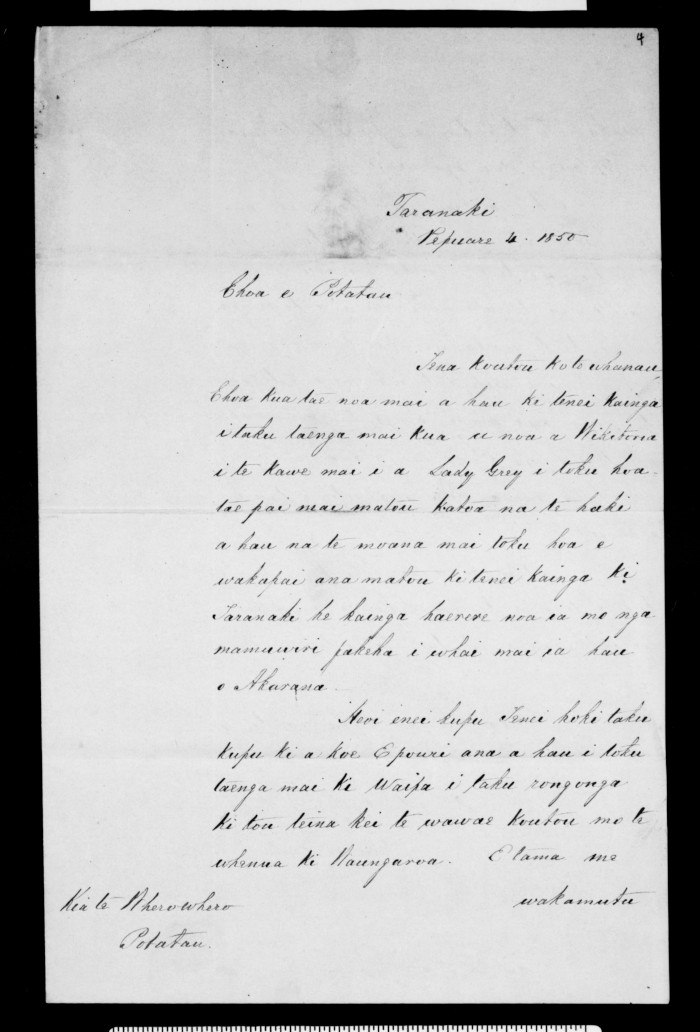 4
Taranaki
Pepuare 4. 1850
Ehoa e Potatau
Tena koutou ko to whanau,
Ehoa kua tae noa mai a hau ki tenei kainga
i taku taenga mai kua u noa a Wikitoria
i te kawe mai i a Lady Grey i toku hoa.
tae pai mai matou katoa na te haki
a hau na te moana mai toku hoa e
wakapai ana matou ki tenei kainga ki
Taranaki he kainga haerere noa ia mo nga
manuwiri pakeha i whai mai ia hau
o Akarana.
Heoi enei kupu Tenei hoki taku
kupu ki a koe E pouri ana a hau i toku
taenga mai ki Waipa i taku rongonga
ki tou teina kei te wawae koutou mo te
whenua ki Naungaroa. E tama me
wakamutu
Kia te Wherowhero
Potatau.